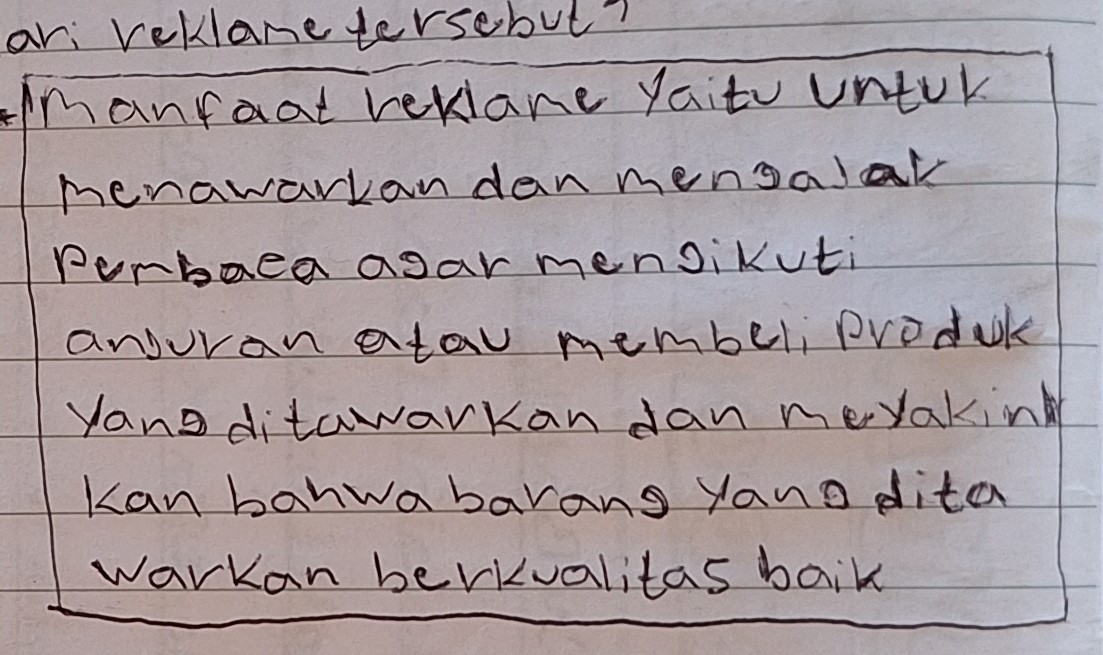 ari reklame tersebut?
Manfaat reklame yaitu untuk
menawarkan dan mengalak
Pembaca agar mengikuti
anjuran atau membeli Produk
yang ditawarkan dan meyakin
kan bahwa barang yang dita
warkan berkualitas baik